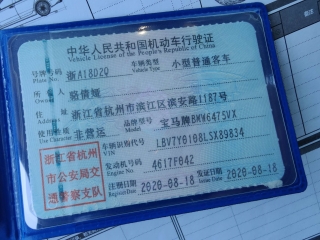 中华人民共和国机动车行驶证
Vehicle License of the People's Republic of China
号牌号码 浙A18D2Q 车辆类型 小型普通客车
所有人 骆倩媛
住址 浙江省杭州市滨江区滨安路1187号
使用性质 非营运 品牌型号 宝马牌BMW6475VX
浙江省杭州
市公安局交
通警察支队
车辆识别代号 LBV7Y0108LSX89834
VIN
发动机号码 4617F042
Engine No.
注册日期 2020-08-18 发证日期 2020-08-18
Register Date Issue Date